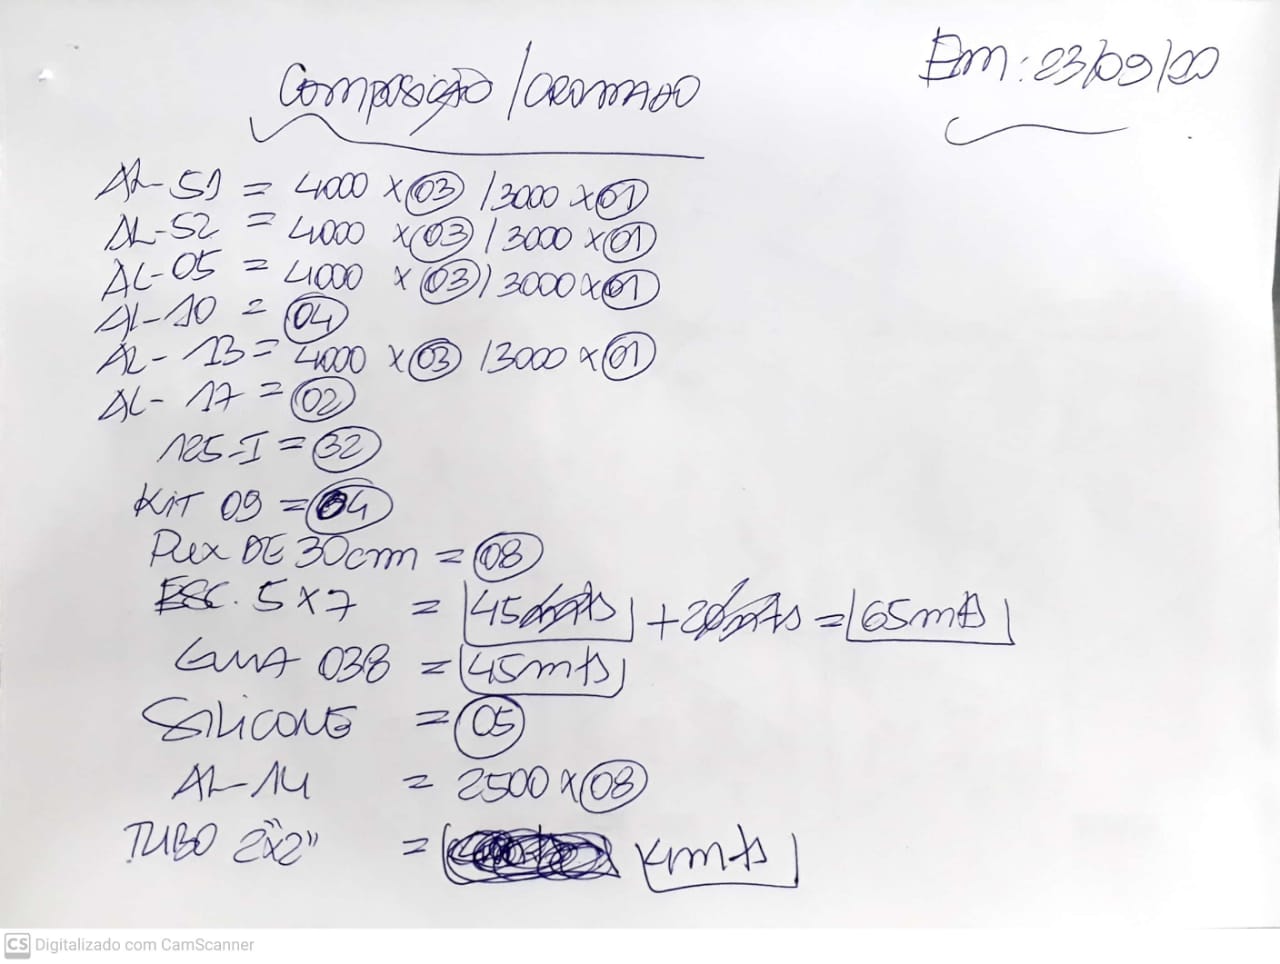 Composição / CROMADO
Em: 23/09/20
AL-51 = 4000 x 03 / 3000 x 01
AL-52 = 4000 x 03 / 3000 x 01
AL-05 = 4000 x 03 / 3000 x 01
AL-10 = 04
AL-13 = 4000 x 03 / 3000 x 01
AL-17 = 02
125-I = 32
KIT 09 = 04
PLEX DE 30cm = 08
ESC. 5x7 = 45mts + 20mts = 65mts
GUIA 038 = 45mts
SILICONE = 05
AL-14 = 2500 x 08
TUBO 2"x2" = 4mts
CS Digitalizado com CamScanner